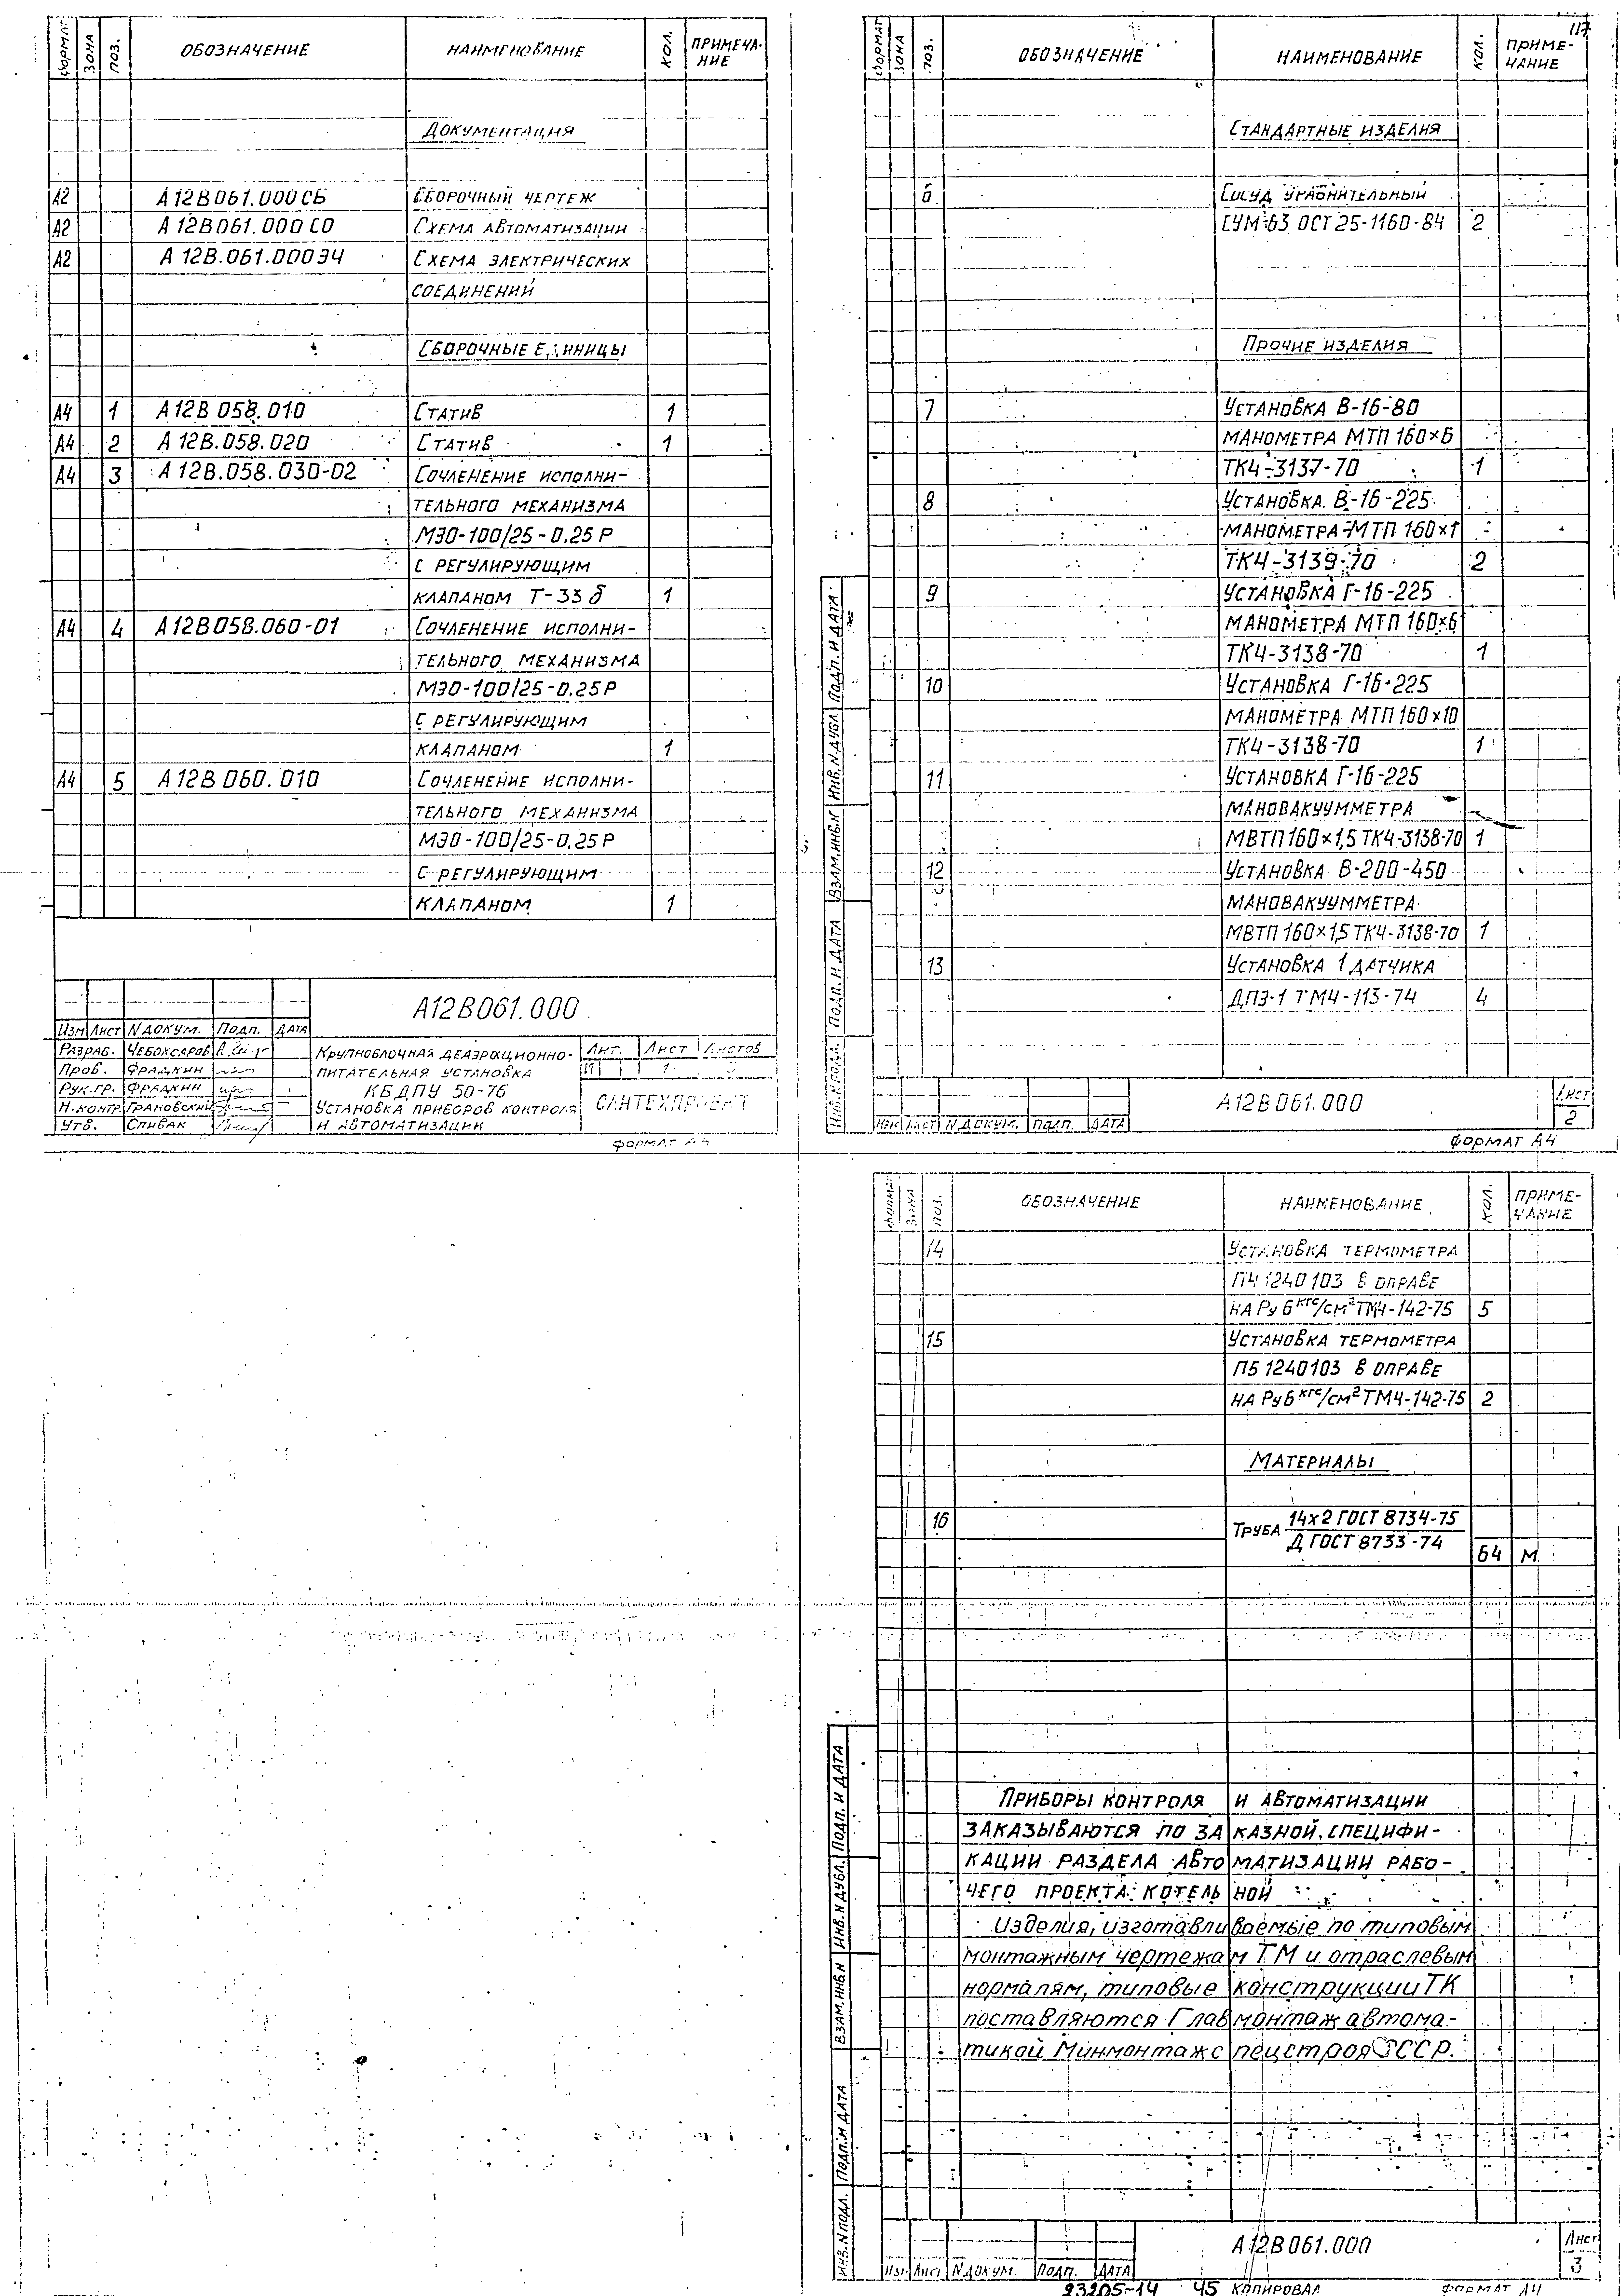 ФОРМАТ ЗОНА ПОЗ. ОБОЗНАЧЕНИЕ НАИМЕНОВАНИЕ КОЛ. ПРИМЕЧА-
НИЕ
ДОКУМЕНТАЦИЯ
А2 А12В061.000СБ СБОРОЧНЫЙ ЧЕРТЕЖ
А2 А12В061.000СО СХЕМА АВТОМАТИЗАЦИИ
А2 А12В.061.000Э4 СХЕМА ЭЛЕКТРИЧЕСКИХ
СОЕДИНЕНИЙ
СБОРОЧНЫЕ ЕДИНИЦЫ
А4 1 А12В058.010 СТАТИВ 1
А4 2 А12В.058.020 СТАТИВ 1
А4 3 А12В.058.030-02 СОЧЛЕНЕНИЕ ИСПОЛНИ-
ТЕЛЬНОГО МЕХАНИЗМА
МЭО-100/25-0.25Р
С РЕГУЛИРУЮЩИМ
КЛАПАНОМ Т-33б 1
А4 4 А12В058.060-01 СОЧЛЕНЕНИЕ ИСПОЛНИ-
ТЕЛЬНОГО МЕХАНИЗМА
МЭО-100/25-0.25Р
С РЕГУЛИРУЮЩИМ
КЛАПАНОМ 1
А4 5 А12В060.010 СОЧЛЕНЕНИЕ ИСПОЛНИ-
ТЕЛЬНОГО МЕХАНИЗМА
МЭО-100/25-0.25Р
С РЕГУЛИРУЮЩИМ
КЛАПАНОМ 1
А12В061.000
ИЗМ ЛИСТ N ДОКУМ. ПОДП. ДАТА
РАЗРАБ. ЧЕБОКСАРОВ
ПРОВ. ФРАДКИН
РУК.ГР. ФРАДКИН
Н.КОНТР. ГРАНОВСКИЙ
УТВ. СПИВАК
КРУПНОБЛОЧНАЯ ДЕАЭРАЦИОННО-
ПИТАТЕЛЬНАЯ УСТАНОВКА
КБДПУ 50-76
УСТАНОВКА ПРИБОРОВ КОНТРОЛЯ
И АВТОМАТИЗАЦИИ
ЛИТ. ЛИСТ ЛИСТОВ
И 1
САНТЕХПРОЕКТ
ФОРМАТ А4
117
ФОРМАТ ЗОНА ПОЗ. ОБОЗНАЧЕНИЕ НАИМЕНОВАНИЕ КОЛ. ПРИМЕ-
ЧАНИЕ
СТАНДАРТНЫЕ ИЗДЕЛИЯ
6 СОСУД УРАВНИТЕЛЬНЫЙ
СУМ-63 ОСТ 25-1160-84 2
ПРОЧИЕ ИЗДЕЛИЯ
7 УСТАНОВКА В-16-80
МАНОМЕТРА МТП 160×6
ТК4-3137-70 1
8 УСТАНОВКА В-16-225
МАНОМЕТРА МТП 160×1
ТК4-3139-70 2
9 УСТАНОВКА Г-16-225
МАНОМЕТРА МТП 160×6
ТК4-3138-70 1
10 УСТАНОВКА Г-16-225
МАНОМЕТРА МТП 160×10
ТК4-3138-70 1
11 УСТАНОВКА Г-16-225
МАНОВАКУУММЕТРА
МВТП 160×1,5 ТК4-3138-70 1
12 УСТАНОВКА В-200-450
МАНОВАКУУММЕТРА
МВТП 160×1,5 ТК4-3138-70 1
13 УСТАНОВКА 1 ДАТЧИКА
ДПЭ-1 ТМ4-113-74 4
ИНВ.N ПОДЛ. ПОДП. И ДАТА ВЗАМ.ИНВ.N ИНВ.N ДУБЛ ПОДП. И ДАТА
ИЗМ ЛИСТ N ДОКУМ. ПОДП. ДАТА
А12В061.000
ЛИСТ
2
ФОРМАТ А4
ФОРМАТ ЗОНА ПОЗ. ОБОЗНАЧЕНИЕ НАИМЕНОВАНИЕ КОЛ. ПРИМЕ-
ЧАНИЕ
14 УСТАНОВКА ТЕРМОМЕТРА
П4 1240103 В ОПРАВЕ
НА Ру 6 кгс/см² ТМ4-142-75 5
15 УСТАНОВКА ТЕРМОМЕТРА
П5 1240103 В ОПРАВЕ
НА Ру 6 кгс/см² ТМ4-142-75 2
МАТЕРИАЛЫ
16 ТРУБА 14х2 ГОСТ 8734-75
Д ГОСТ 8733-74
64 М
ПРИБОРЫ КОНТРОЛЯ И АВТОМАТИЗАЦИИ
ЗАКАЗЫВАЮТСЯ ПО ЗАКАЗНОЙ СПЕЦИФИ-
КАЦИИ РАЗДЕЛА АВТОМАТИЗАЦИИ РАБО-
ЧЕГО ПРОЕКТА КОТЕЛЬНОЙ
Изделия, изготавливаемые по типовым
монтажным чертежам ТМ и отраслевым
нормалям, типовые конструкции ТК
поставляются Главмонтажавтома-
тикой Минмонтажспецстроя СССР.
ИНВ.N ПОДЛ. ПОДП. И ДАТА ВЗАМ.ИНВ.N ИНВ.N ДУБЛ. ПОДП. И ДАТА
ИЗМ ЛИСТ N ДОКУМ. ПОДП. ДАТА
А12В061.000
ЛИСТ
3
23205-14 45 КОПИРОВАЛ ФОРМАТ А4